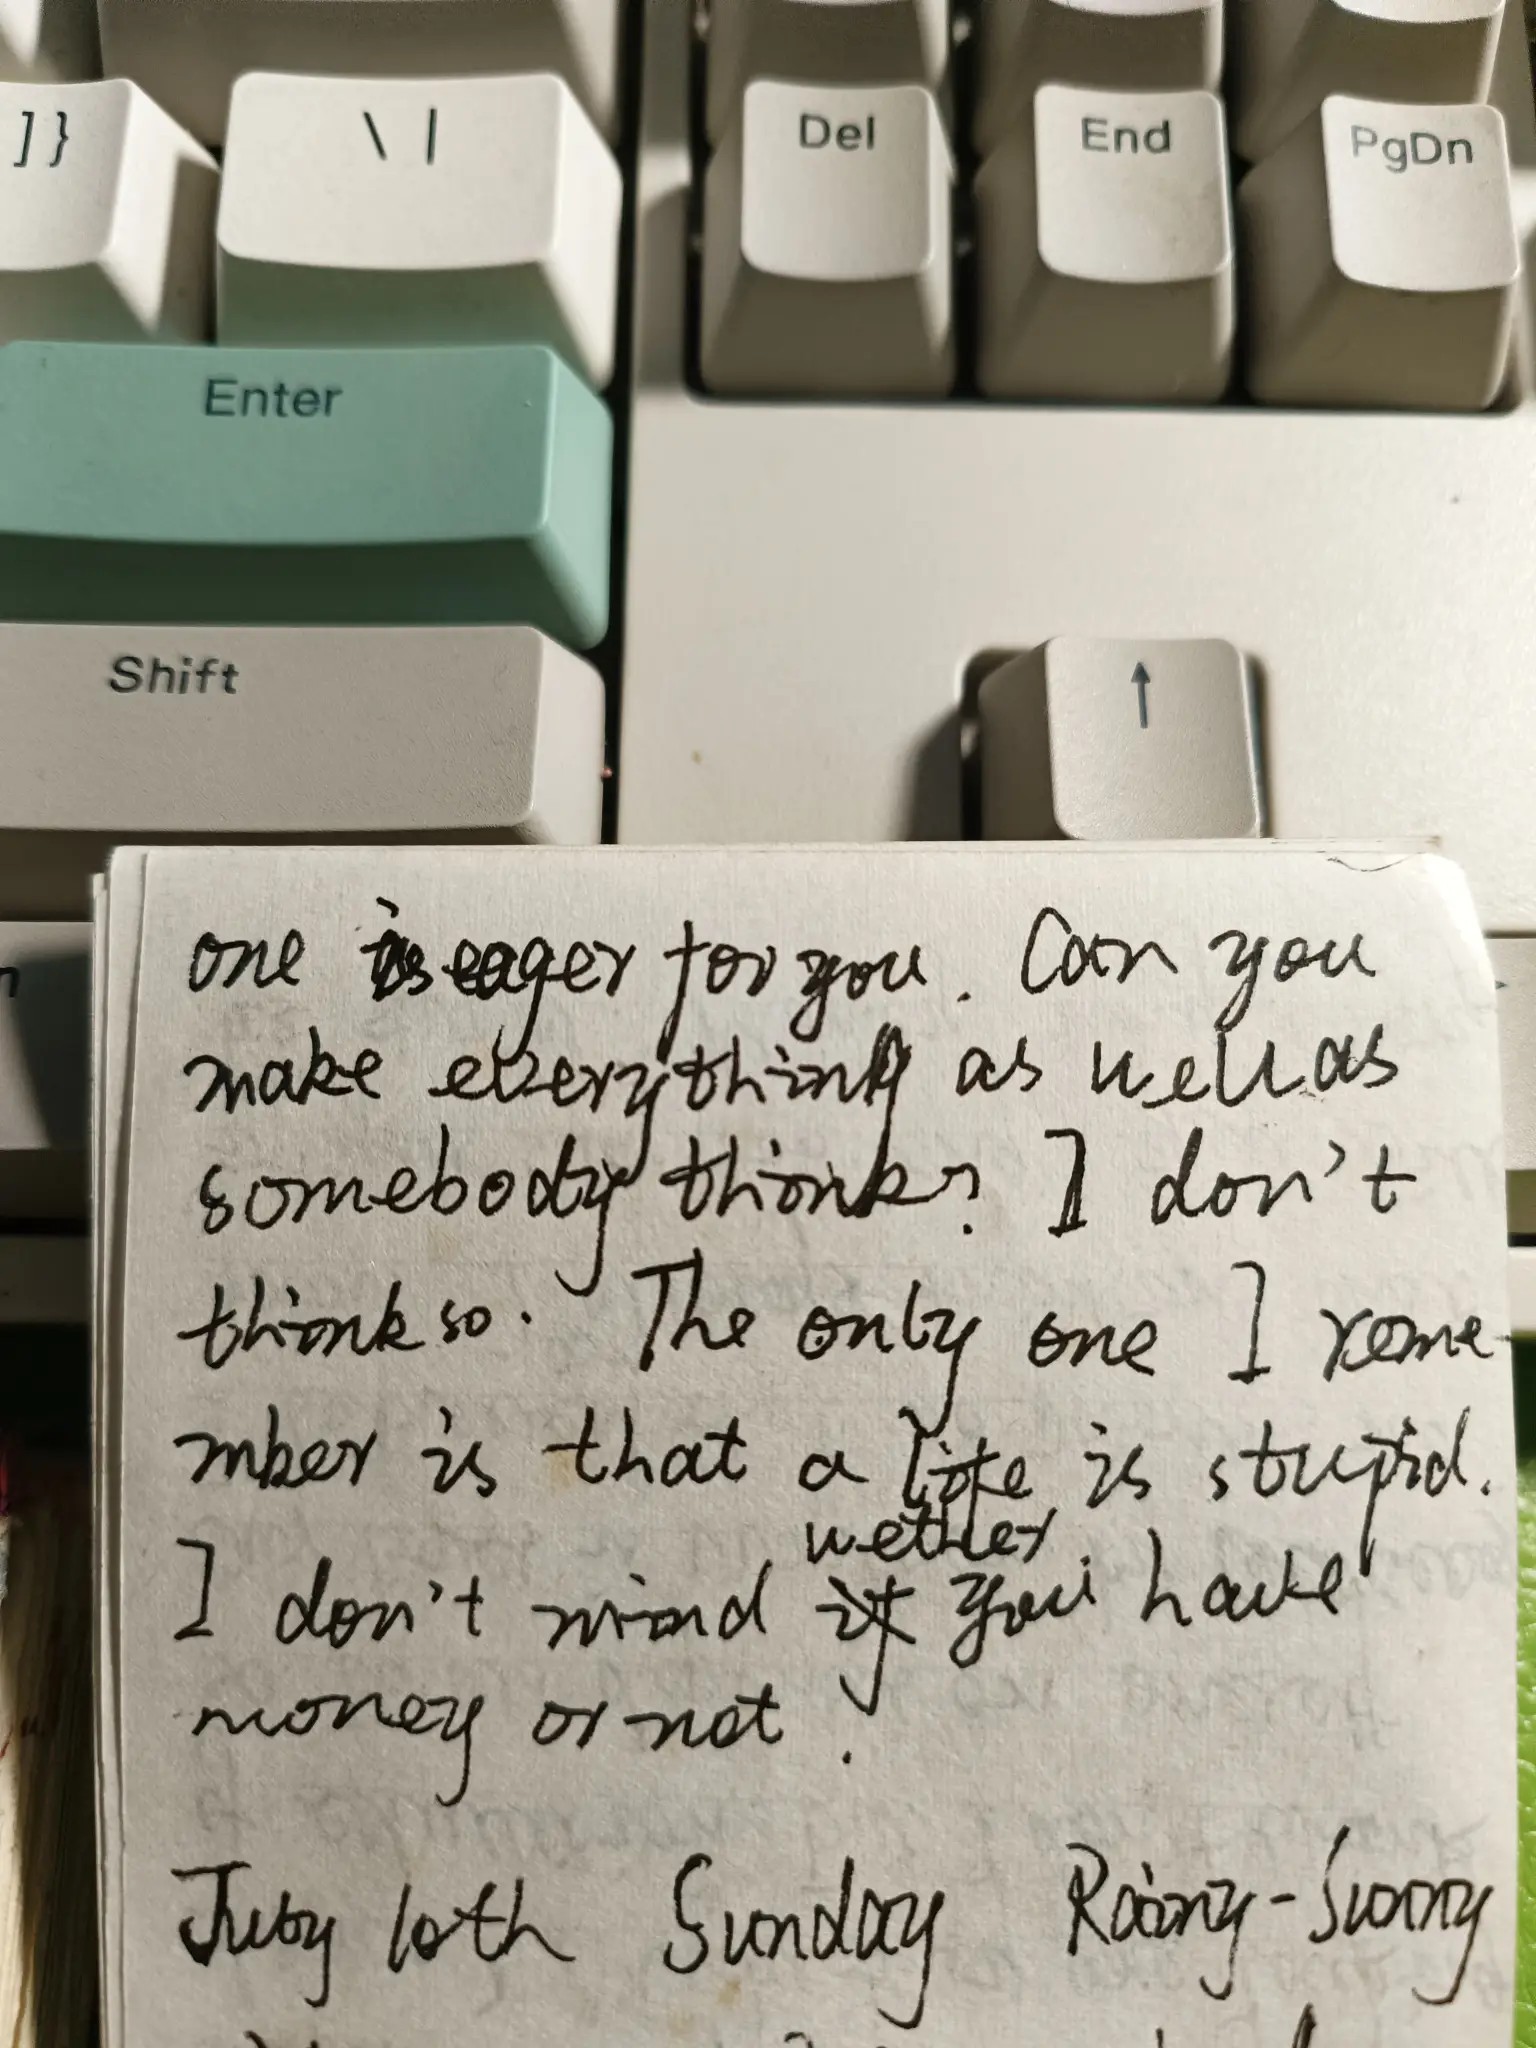 ]}
\ |
Del
End
PgDn
Enter
Shift
↑
one is eager for you. Can you
make everything as well as
somebody think? I don't
think so. The only one I reme-
mber is that a life is stupid.
wether
I don't mind if you have
money or not?
July 10th Sunday Rainy-Sunny